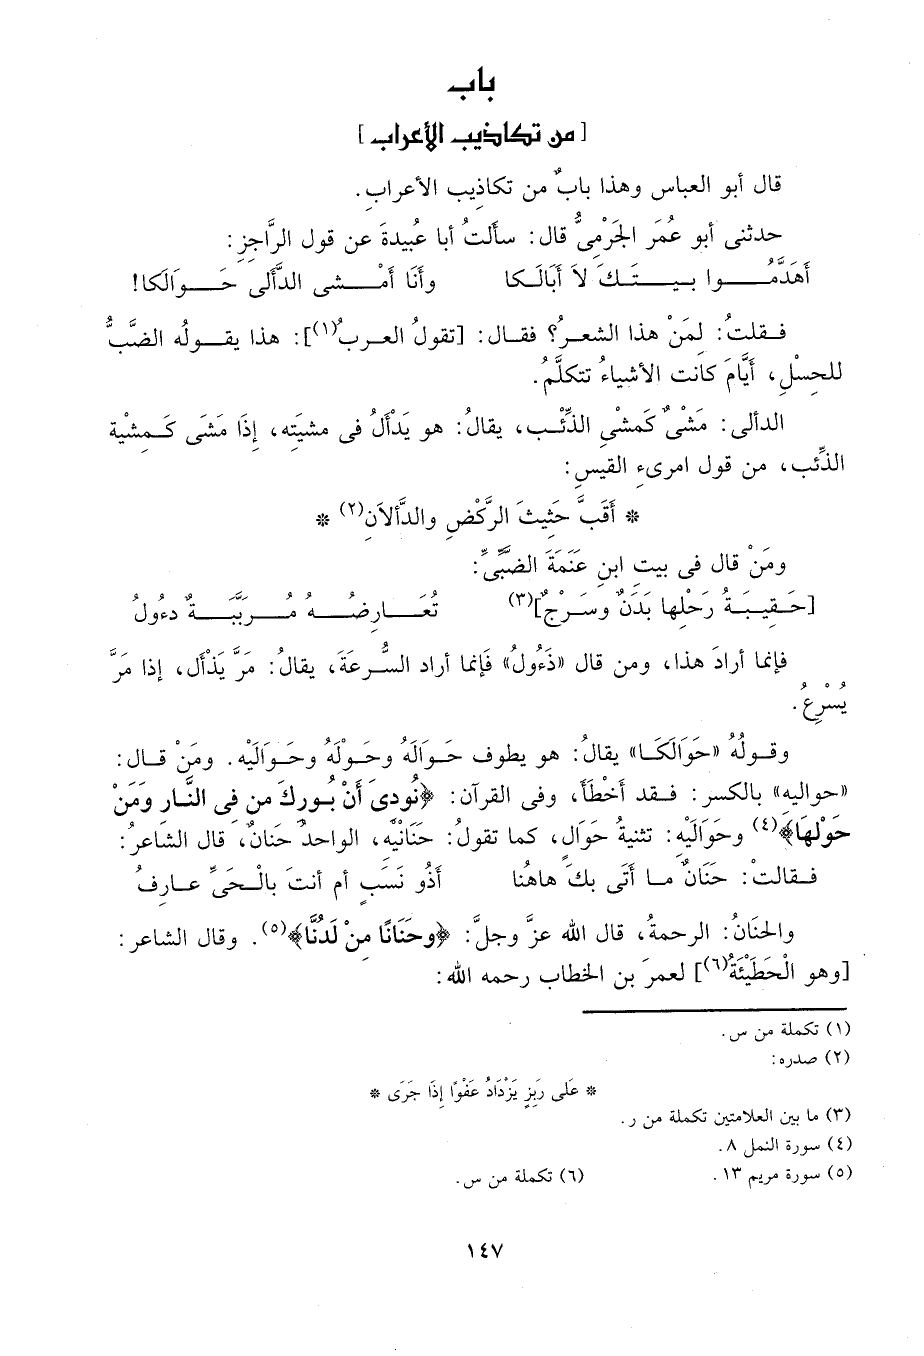 باب
[من تكاذيب الأعراب]
قال أبو العباس وهذا بابٌ من تكاذيب الأعرابِ.
حدثنى أبو عُمَر الجَرْمِىُّ قال: سألتُ أبا عبيدةَ عن قول الرَّاجزِ:
أَهَدَّمُوا بيتَكَ لاَ أبَالَكا وأنَا أمْشى الدَّألى حَوَالَكا!
فقلتُ: لمَنْ هذا الشعرُ؟ فقال: [تقولُ العربُ(١)]: هذا يقولُه الضَّبُّ
للحِسْلِ، أيَّامَ كانت الأشياءُ تتكلَّمُ.
الدألى: مَشْىٌ كَمشْىِ الذِّئْبِ، يقالُ: هو يَدْألُ فى مشيَتِه، إذَا مَشَى كَمِشْية
الذِّئب، من قول امرىءِ القيسِ:
* أقَبَّ حَثِيثَ الرَّكْضِ والدَّألاَنِ(٢) *
ومَنْ قال فى بيتِ ابنِ عَنَمَةَ الضَّبِّىِّ:
[حَقِيبَةُ رَحْلِها بَدَنٌ وسَرْجٌ](٣) تُعَارِضُهُ مُرَبَّبَةٌ دءُولُ
فإنما أرادَ هذا، ومن قال «ذَءُولُ» فَإنما أراد السُّرعَةَ، يقالُ: مَرَّ يَذْأل، إذا مَرَّ
يُسْرِعُ.
وقولُهُ «حَوَالَكَا» يقالُ: هو يطوف حَوالَهُ وحَوْلَهُ وحَوَالَيْه. ومَنْ قال:
«حواليِه» بالكسر: فقد أخْطَأَ، وفى القرآن: ﴿نُودِىَ أَنْ بُورِكَ مَن فِى النَّارِ ومَنْ
حَوْلهَا﴾(٤) وحَوَالَيْه: تثنيةُ حَوَالٍ، كما تقولُ: حَنَانْيه، الواحدُ حَنانٌ، قال الشاعرُ:
فقالتْ: حَنَانٌ ما أتَى بكَ هاهُنا أذُو نَسَبٍ أم أنتَ بالْحَىِّ عارِفُ
والحنَانُ: الرحمةُ، قال الله عزَّ وجلَّ: ﴿وحَنَانًا مِنْ لَدُنَّا﴾(٥). وقال الشاعر:
[وهو الْحَطَيْئَةُ(٦)] لعمرَ بن الخطاب رحمه الله:
(١) تكملة من س.
(٢) صدره:
* عَلَى رَبِزٍ يَزْدَادُ عَفْوًا إذَا جَرَى *
(٣) ما بين العلامتين تكملة من ر.
(٤) سورة النمل ٨.
(٥) سورة مريم ١٣. (٦) تكملة من س.
١٤٧